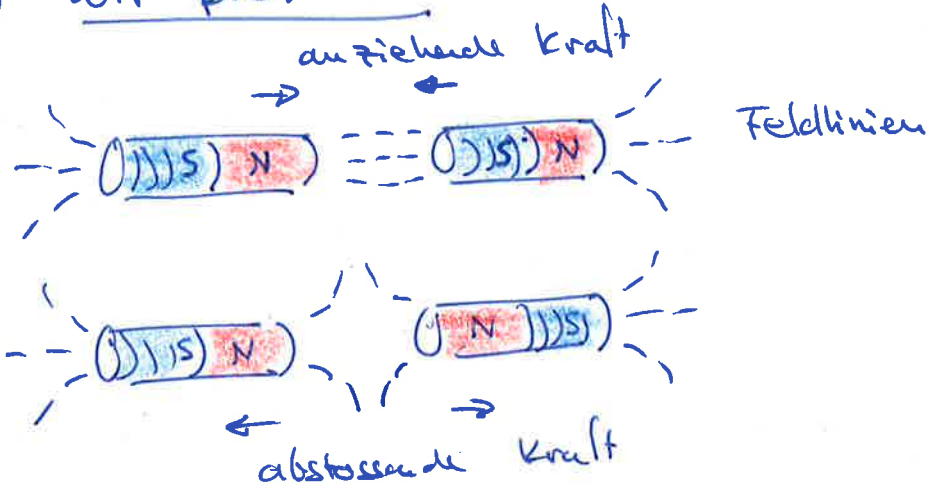 anziehende Kraft
S N S N Feldlinien
S N N S
abstossende Kraft